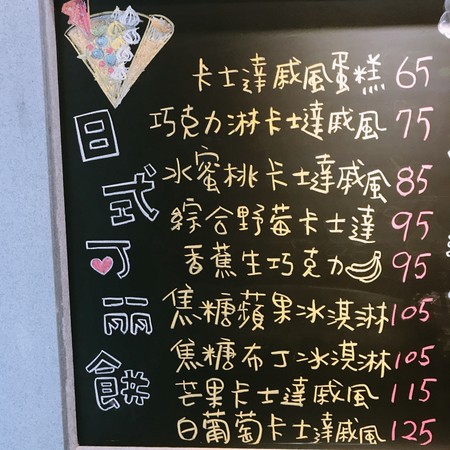 日式可丽餅
卡士達戚風蛋糕 65
巧克力淋卡士達戚風 75
水蜜桃卡士達戚風 85
綜合野莓卡士達 95
香蕉生巧克力 95
焦糖蘋果冰淇淋 105
焦糖布丁冰淇淋 105
芒果卡士達戚風 115
白葡萄卡士達戚風 125